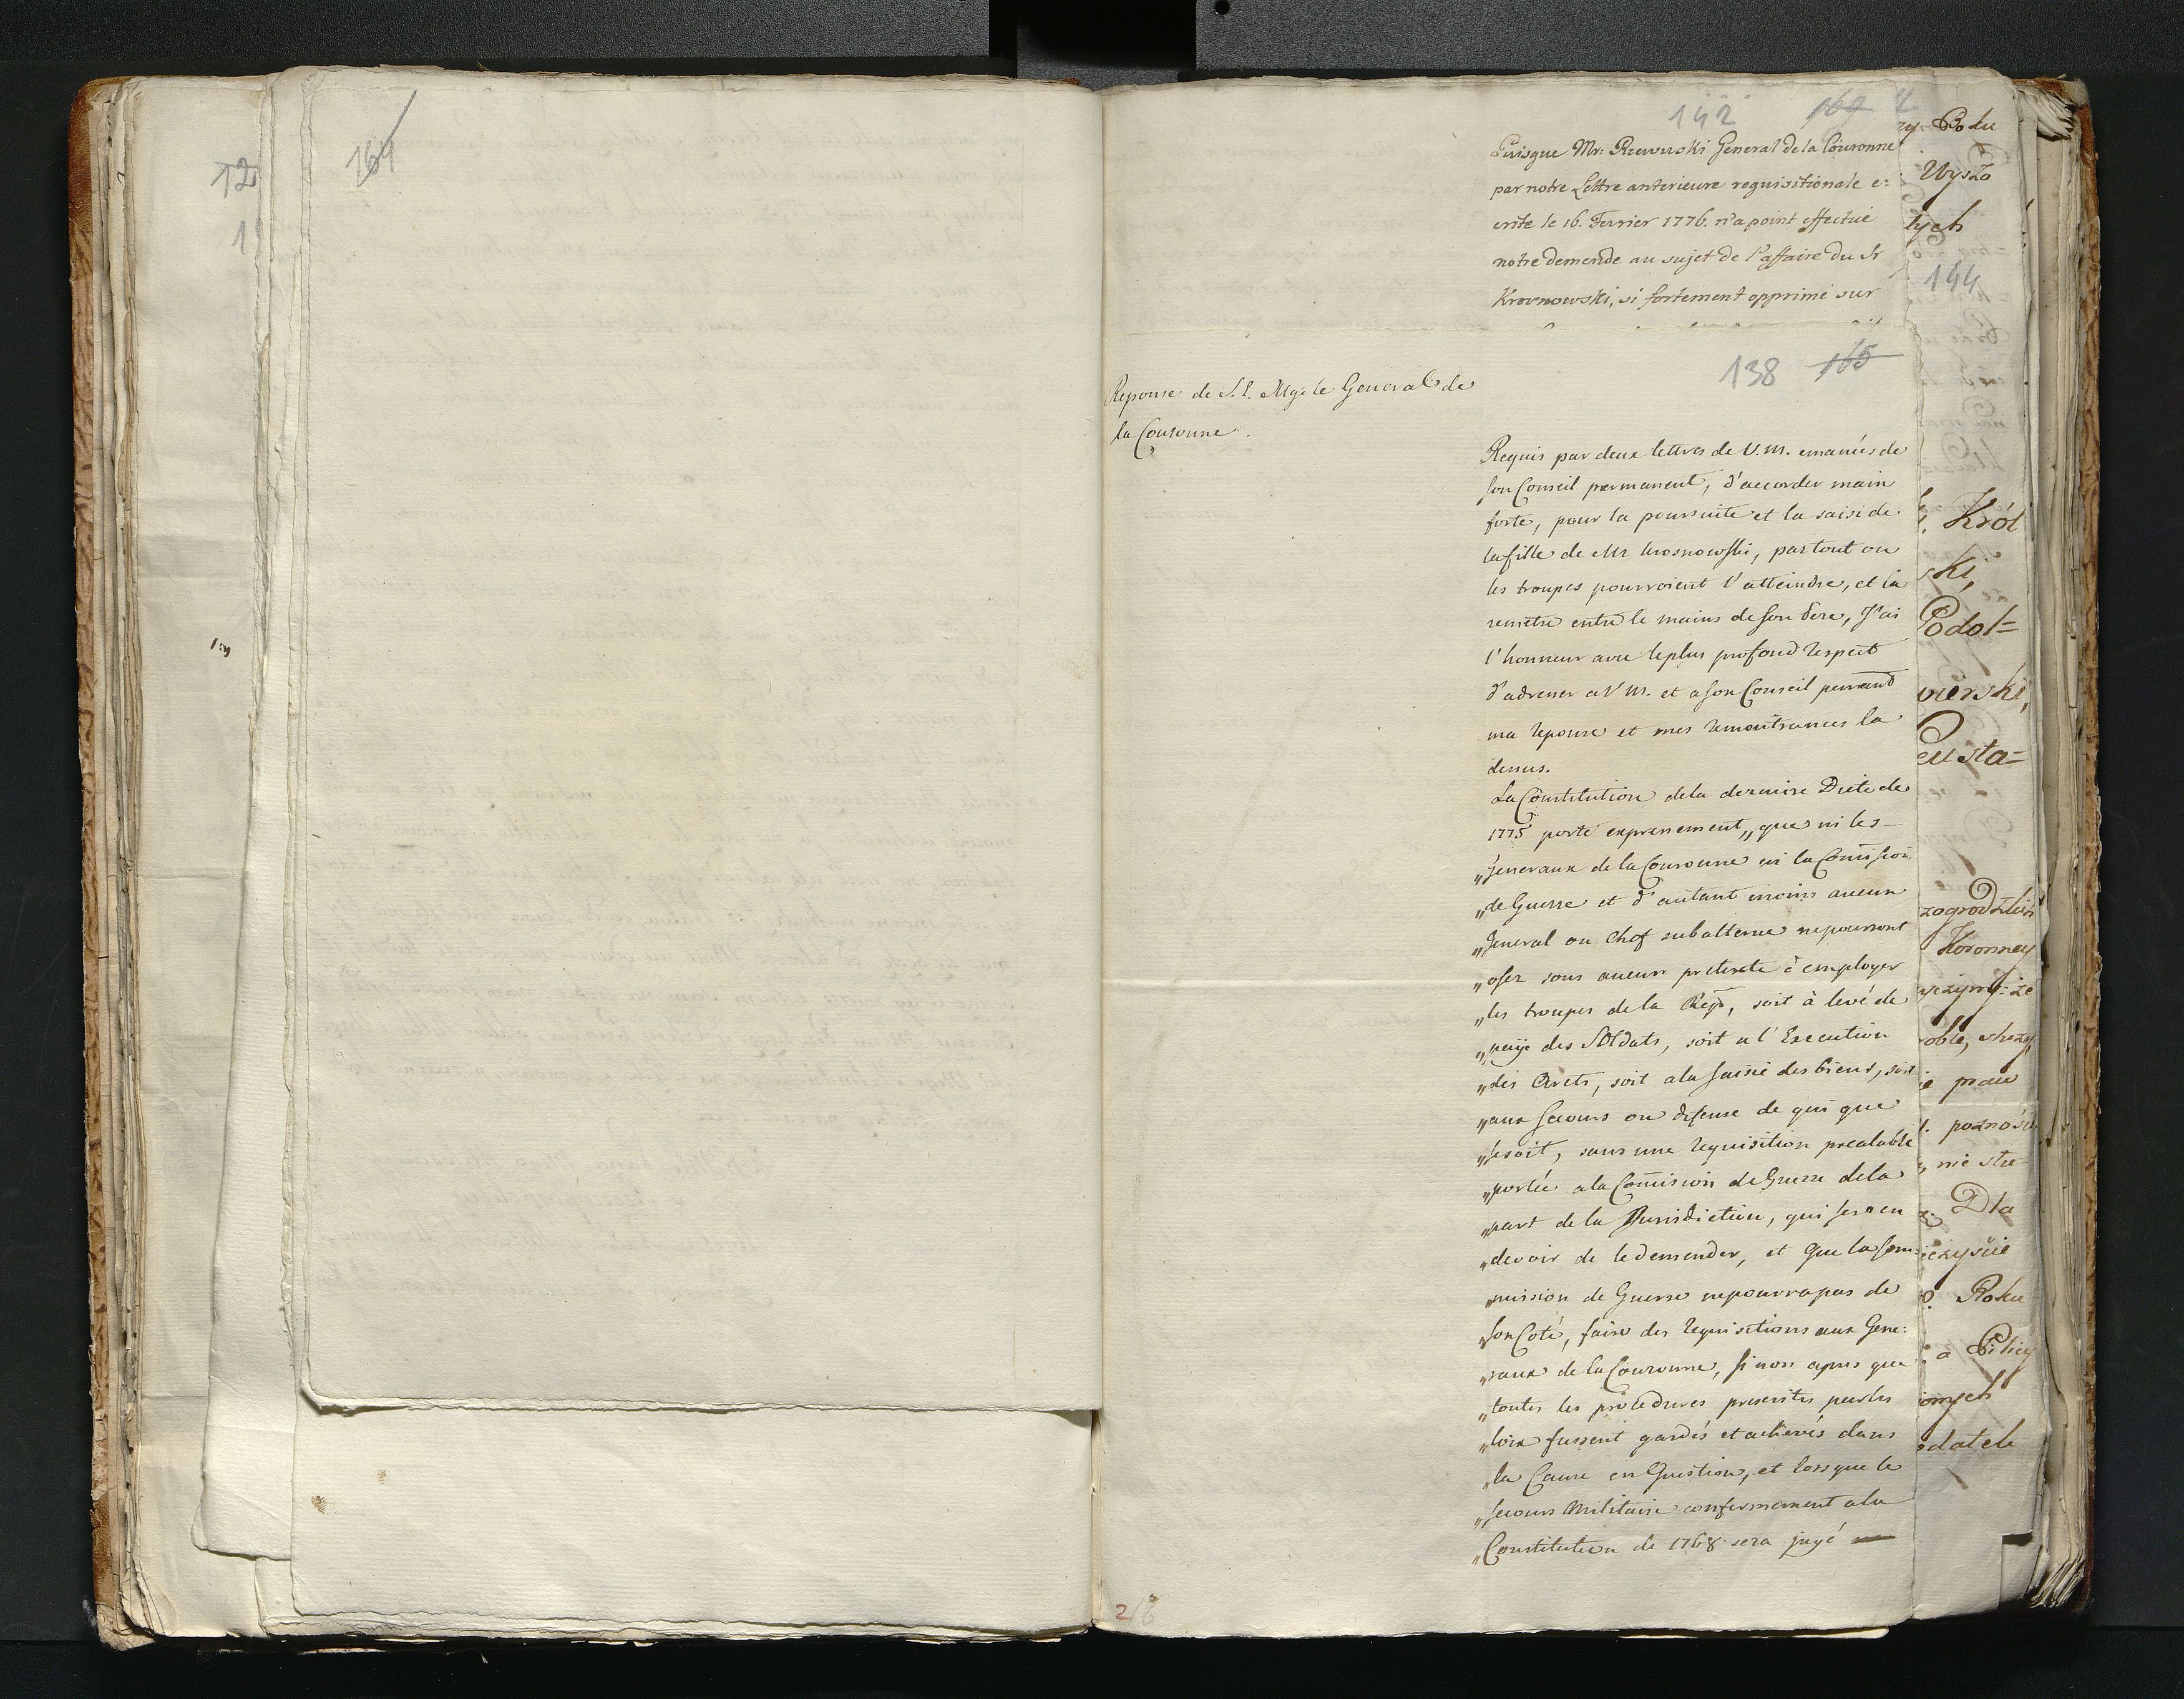 12
1
164
142 169
Puisque Mr: Rzewuski General de la Couronne
par notre Lettre anterieure requisitionale e:
crite le 16. Fevrier 1776. n'a point effectué
notre demende au sujet de l'affaire du Sr
Krosnowski, si fortement opprimé sur
138 165
Reponse de S.E. Mgr le General de
la Couronne.
Requis par deux lettres de V.M. emanées de
son Conseil permanent, d'accorder main
forte, pour la poursuite et la saisi de
la fille de Mr Krosnowski, partout ou
les troupes pourroient l'atteindre, et la
remetre entre le mains de son Pere, J'ai
l'honneur avec le plus profond respect
d'adresser a V.M. et a son Conseil permand
ma reponse et mes remontrances la
dessus.
La Constitution de la derniere Diete de
1775 porte expressement „que ni les
„Generaux de la Couronne ni la Comission
„de Guerre et d'autant moins aucun
„General ou Chef subalterne ne pourront
„oser sous aucun pretexte à employer
„les troupes de la Rep, soit à levé de
„paije des Soldats, soit a l'Execution
„des Arets, soit a la saisie des biens, soit
„aux secours ou defense de qui que
„se soit, sans une requisition prealable
„portée a la Comision de Guerre de la
„part de la Jurisdiction, qui sera en
„devoir de le demender, et que la Com:
„mission de Guerre ne pourra pas de
„son Coté, faire des requisitions aux Gene:
„raux de la Couronne, si non apres que
„toutes les procedures prescrites par les
„loix fussent gardés et achevés dans
„la Cause en Question, et lors que le
„secours Militaire conformement a la
„Constitution de 1768 sera jugé
218
Roku
Wyszo
tych
144
Król
ski,
Podol=
wierski,
eusta=
Koronney
oble, skrzy
prau
nie stu=
Dla
Roku
a Pilicy
omych
datek